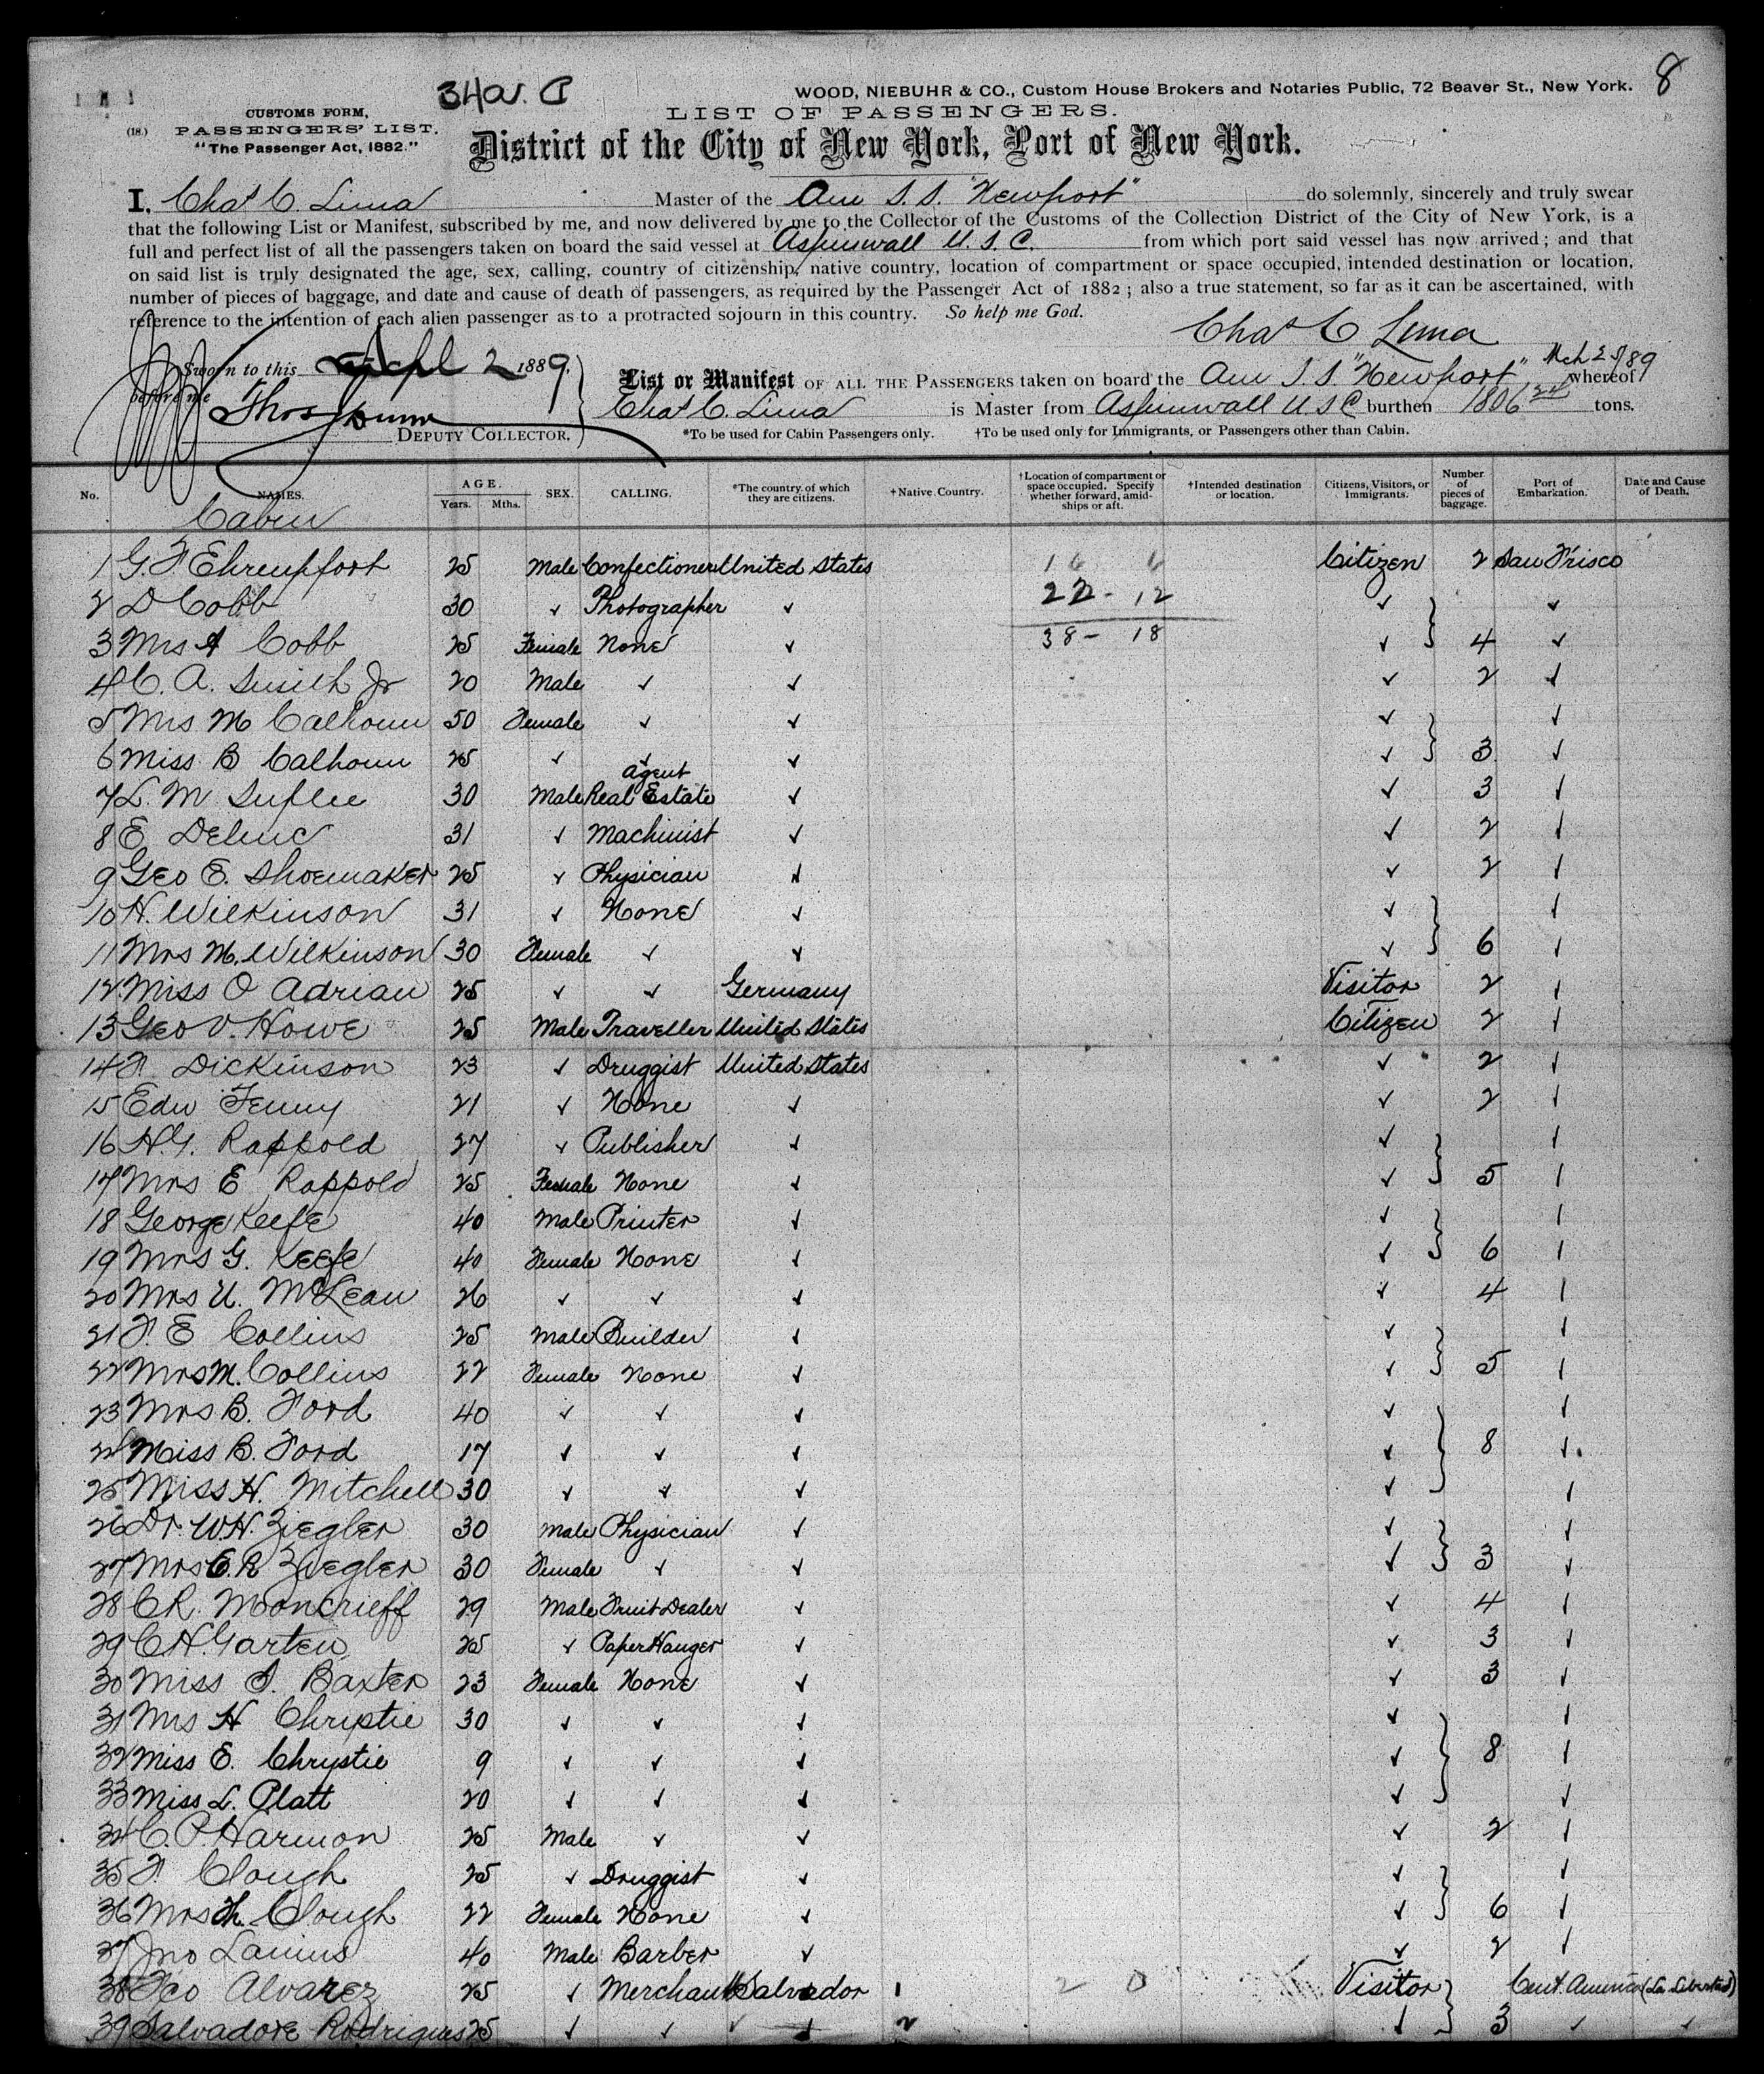 8
34a. C
WOOD, NIEBUHR & CO., Custom House Brokers and Notaries Public, 72 Beaver St., New York.
CUSTOMS FORM,
LIST OF PASSENGERS.
(18.) PASSENGERS' LIST.
"The Passenger Act, 1882."
District of the City of New York, Port of New York.
I, Chas C. Lima Master of the Am S.S. "Newport" do solemnly, sincerely and truly swear
that the following List or Manifest, subscribed by me, and now delivered by me to the Collector of the Customs of the Collection District of the City of New York, is a
full and perfect list of all the passengers taken on board the said vessel at Aspinwall U.S.C. from which port said vessel has now arrived; and that
on said list is truly designated the age, sex, calling, country of citizenship, native country, location of compartment or space occupied, intended destination or location,
number of pieces of baggage, and date and cause of death of passengers, as required by the Passenger Act of 1882; also a true statement, so far as it can be ascertained, with
reference to the intention of each alien passenger as to a protracted sojourn in this country. So help me God.
Chas C Lima
Sworn to this Apl 2 1889,
before me
Thos Dunn
DEPUTY COLLECTOR.
Mch 25/89
List or Manifest OF ALL THE PASSENGERS taken on board the Am S.S. "Newport" whereof
Chas C. Lima is Master from Aspinwall U S C burthen 1806 tons.
*To be used for Cabin Passengers only. †To be used only for Immigrants, or Passengers other than Cabin.
No. NAMES. AGE. Years. Mths. SEX. CALLING. *The country of which they are citizens. †Native Country. †Location of compartment or space occupied. Specify whether forward, amidships or aft. †Intended destination or location. Citizens, Visitors, or Immigrants. Number of pieces of baggage. Port of Embarkation. Date and Cause of Death.
Cabin
1 G. F Ehrenpfort 25 Male Confectioner United States 16 6 Citizen 2 San Frisco
2 D Cobb 30 ✓ Photographer ✓ 22 - 12 ✓ ✓
3 Mrs A Cobb 25 Female None ✓ 38 - 18 ✓ 4 ✓
4 C. A. Smith Jr 20 Male ✓ ✓ ✓ 2 ✓
5 Mrs M Calhoun 50 Female ✓ ✓ ✓ ✓
6 Miss B Calhoun 25 ✓ ✓ ✓ ✓ 3 ✓
7 L. M 30 Male Real Estate agent ✓ ✓ 3 ✓
8 E 31 ✓ Machinist ✓ ✓ 2 ✓
9 Geo E. Shoemaker 25 ✓ Physician ✓ ✓ 2 ✓
10 H. Wilkinson 31 ✓ None ✓ ✓ ✓
11 Mrs M. Wilkinson 30 Female ✓ ✓ ✓ 6 ✓
12 Miss O Adrian 25 ✓ ✓ Germany Visitor 2 ✓
13 Geo V. Howe 25 Male Traveller United States Citizen 2 ✓
14 F. Dickinson 23 ✓ Druggist United States ✓ 2 ✓
15 Edw Fenny 21 ✓ None ✓ ✓ 2 ✓
16 H. G. Rappold 27 ✓ Publisher ✓ ✓ ✓
17 Mrs E Rappold 25 Female None ✓ ✓ 5 ✓
18 George Keefe 40 Male Printer ✓ ✓ ✓
19 Mrs G. Keefe 40 Female None ✓ ✓ 6 ✓
20 Mrs U. McLean 26 ✓ ✓ ✓ ✓ 4 ✓
21 F. E Collins 25 Male Builder ✓ ✓ ✓
22 Mrs M. Collins 22 Female None ✓ ✓ 5 ✓
23 Mrs B. Ford 40 ✓ ✓ ✓ ✓ ✓
24 Miss B. Ford 17 ✓ ✓ ✓ ✓ 8 ✓
25 Miss H. Mitchell 30 ✓ ✓ ✓ ✓ ✓
26 Dr. W. H. Ziegler 30 Male Physician ✓ ✓ ✓
27 Mrs C. R Ziegler 30 Female ✓ ✓ ✓ 3 ✓
28 C R. Moncrieff 29 Male Fruit Dealer ✓ ✓ 4 ✓
29 C H Garten 25 ✓ Paper Hanger ✓ ✓ 3 ✓
30 Miss S. Baxter 23 Female None ✓ ✓ 3 ✓
31 Mrs H Chrystie 30 ✓ ✓ ✓ ✓ ✓
32 Miss E. Chrystie 9 ✓ ✓ ✓ ✓ 8 ✓
33 Miss L. Platt 20 ✓ ✓ ✓ ✓ ✓
34 C. P. Harmon 25 Male ✓ ✓ ✓ 2 ✓
35 F. Clough 25 ✓ Druggist ✓ ✓ ✓
36 Mrs Clough 22 Female None ✓ ✓ 6 ✓
37 Jno Lanius 40 Male Barber ✓ ✓ 2 ✓
38 Fco Alvarez 25 ✓ Merchant Salvador 1 2 0 Visitor Cent. America (La Libertad)
39 Salvadore Rodrigues 25 ✓ ✓ ✓ 2 ✓ 3 ✓ ✓